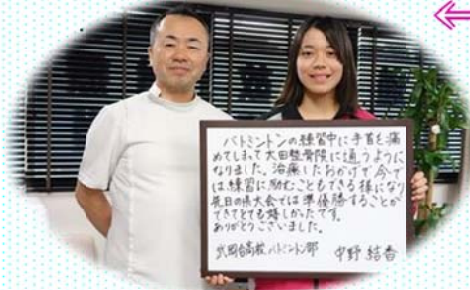 バトミントンの練習中に手首を痛
めてしまって太田整骨院に通うように
なりました。治療したおかげで今で
は練習に励むこともできる様になり
先日の県大会では準優勝することが
できてとても嬉しかったです。
ありがとうございました。
武岡台高校バトミントン部 中野 結香